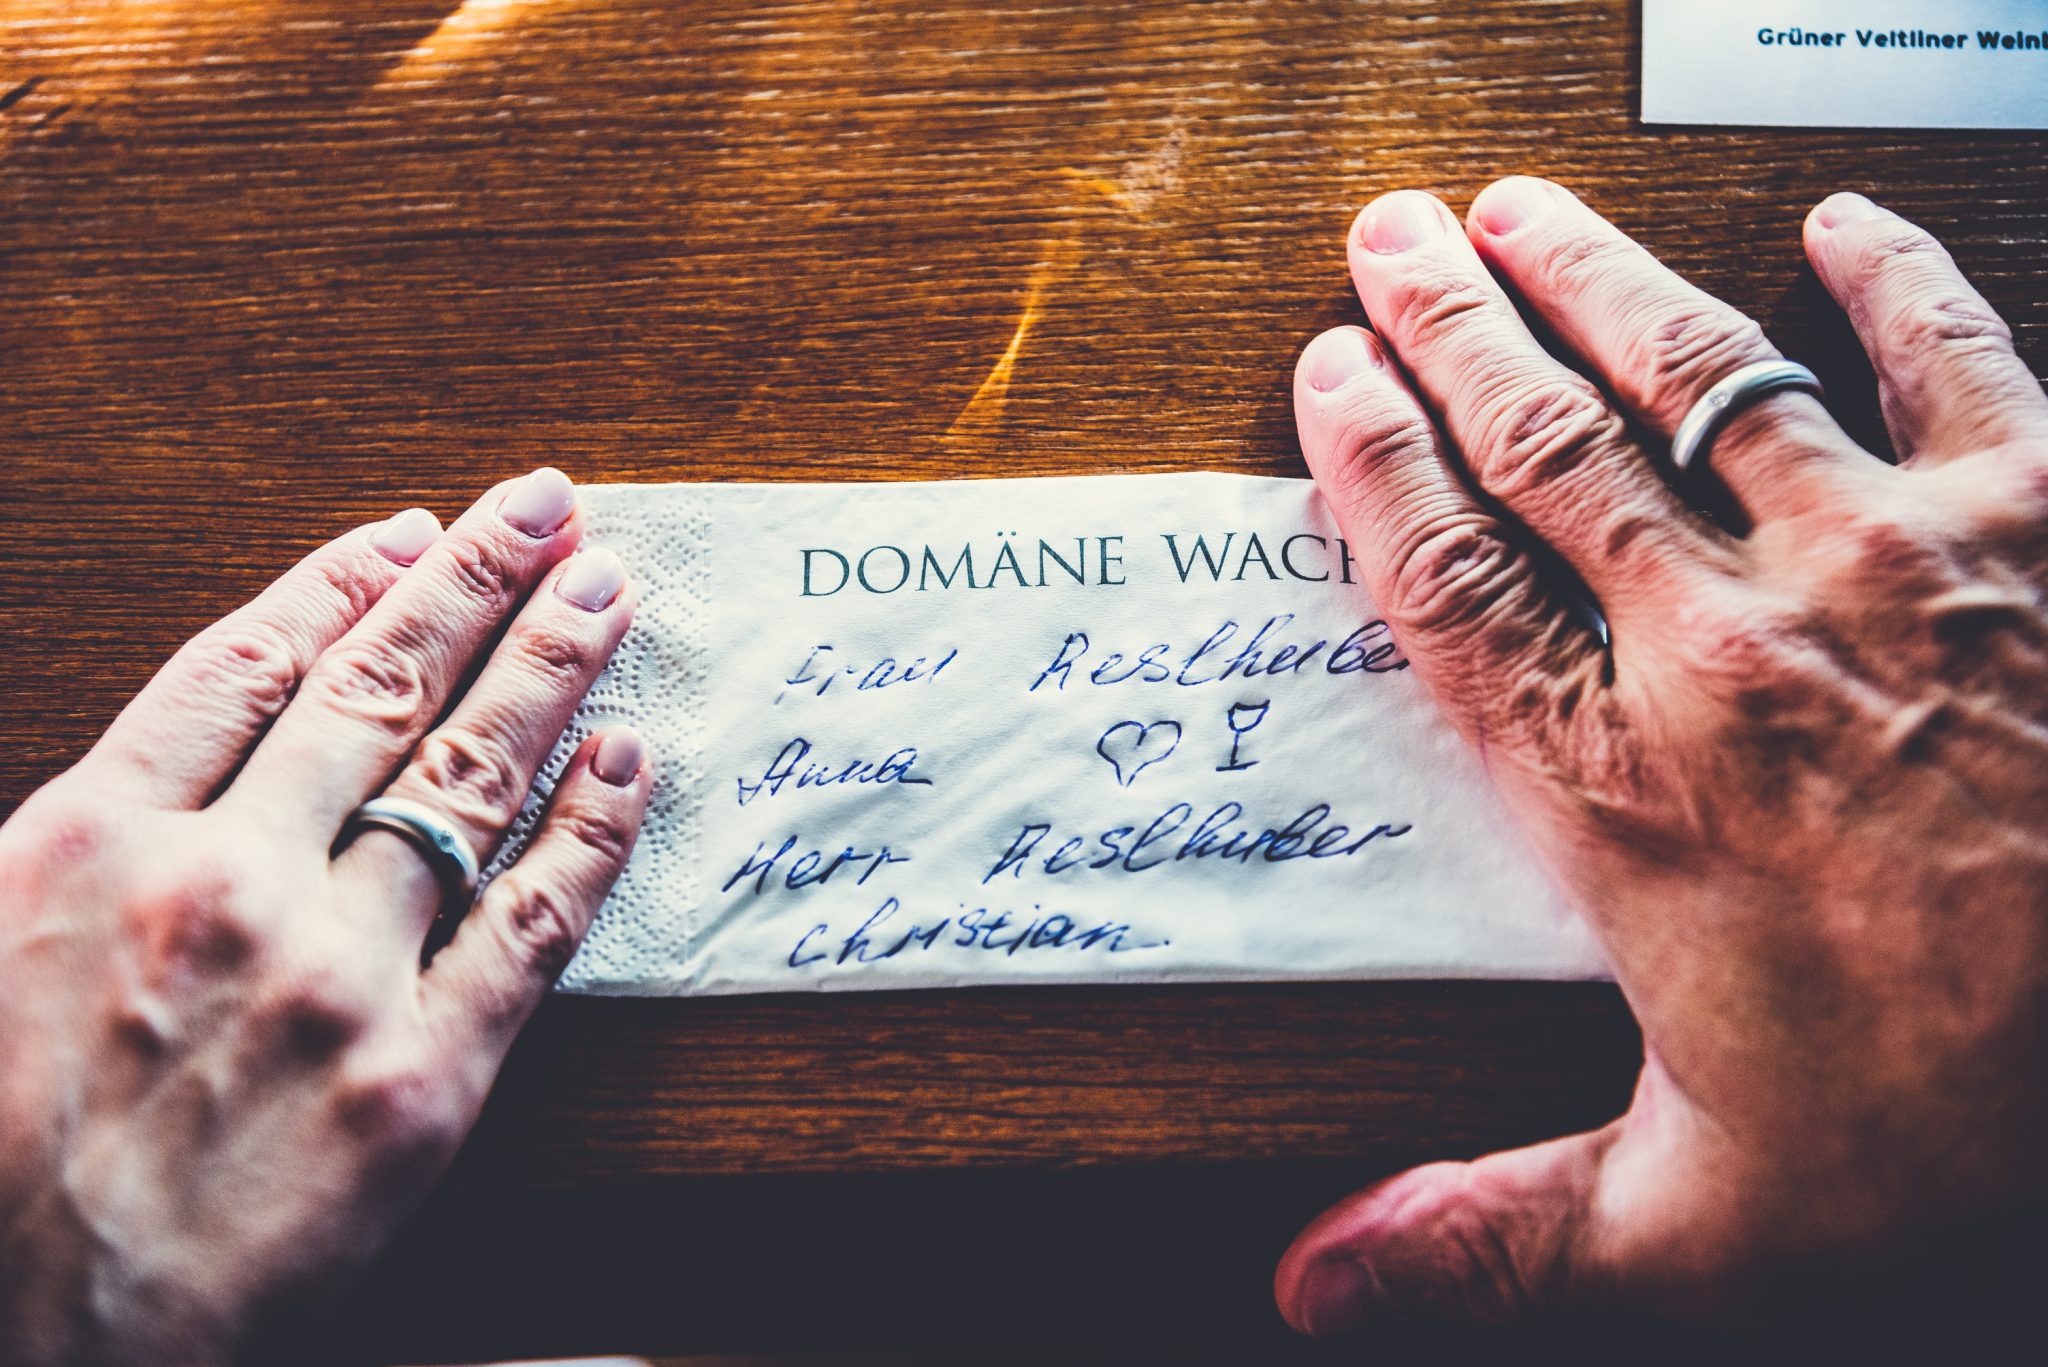 Grüner Veltliner Weinb
DOMÄNE WACH
Frau Reslhuber
Anna
Herr Reslhuber
Christian.